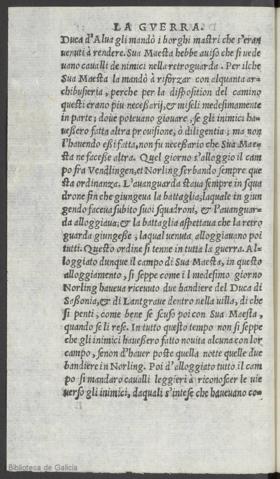 LA GVERRA.
Duca d'Alua gli mandò i borghi mastri che s'eran
venuti à rendere. Sua Maesta hebbe auiso che si vede
uano caualli de nimici nella retroguarda. Per ilche
Sua Maesta la mandò à riforzar con alquanta ar-
chibuseria, perche per la disposition del camino
questi erano piu necessarij, & miseli medesimamente
in parte; doue poteuano giouare, se gli inimici ha-
uessero fatta altra prouisione, ò diligentia; ma non
l'hauendo essi fatta, non fu necessario che Sua Mae-
sta ne facesse altra. Quel giorno s'alloggio il cam
po fra Vendlingen, et Norling serbando sempre que
sta ordinanza. L'auanguarda staua sempre in squa
drone fin che giungeua la battaglia, laquale in giun
gendo faceua subito suoi squadroni, & l'auanguar-
da alloggiaua; & la battaglia aspettaua che la retro
guarda giungesse, laqual venuta alloggiauano poi
tutti. Questo ordine si tenne in tutta la guerra. Al-
loggiato dunque il campo di Sua Maesta, in questo
alloggiamento, si seppe come il medesimo giorno
Norling haueua riceuuto due bandiere del Duca di
Sassonia, & di Lantgraue dentro nella villa, di che
si penti, come bene se scusò poi con Sua Maesta,
quando se li rese. In tutto questo tempo non si seppe
che gli inimici hauessero fatto nouita alcuna con lor
campo, senon d'hauer poste quella notte quelle due
bandiere in Norling. Poi d'alloggiato tutto il cam
po si mandaro caualli leggieri à riconoscer le uie
uerso gli inimici, daquali s'intese che haueuano co-
Biblioteca de Galicia